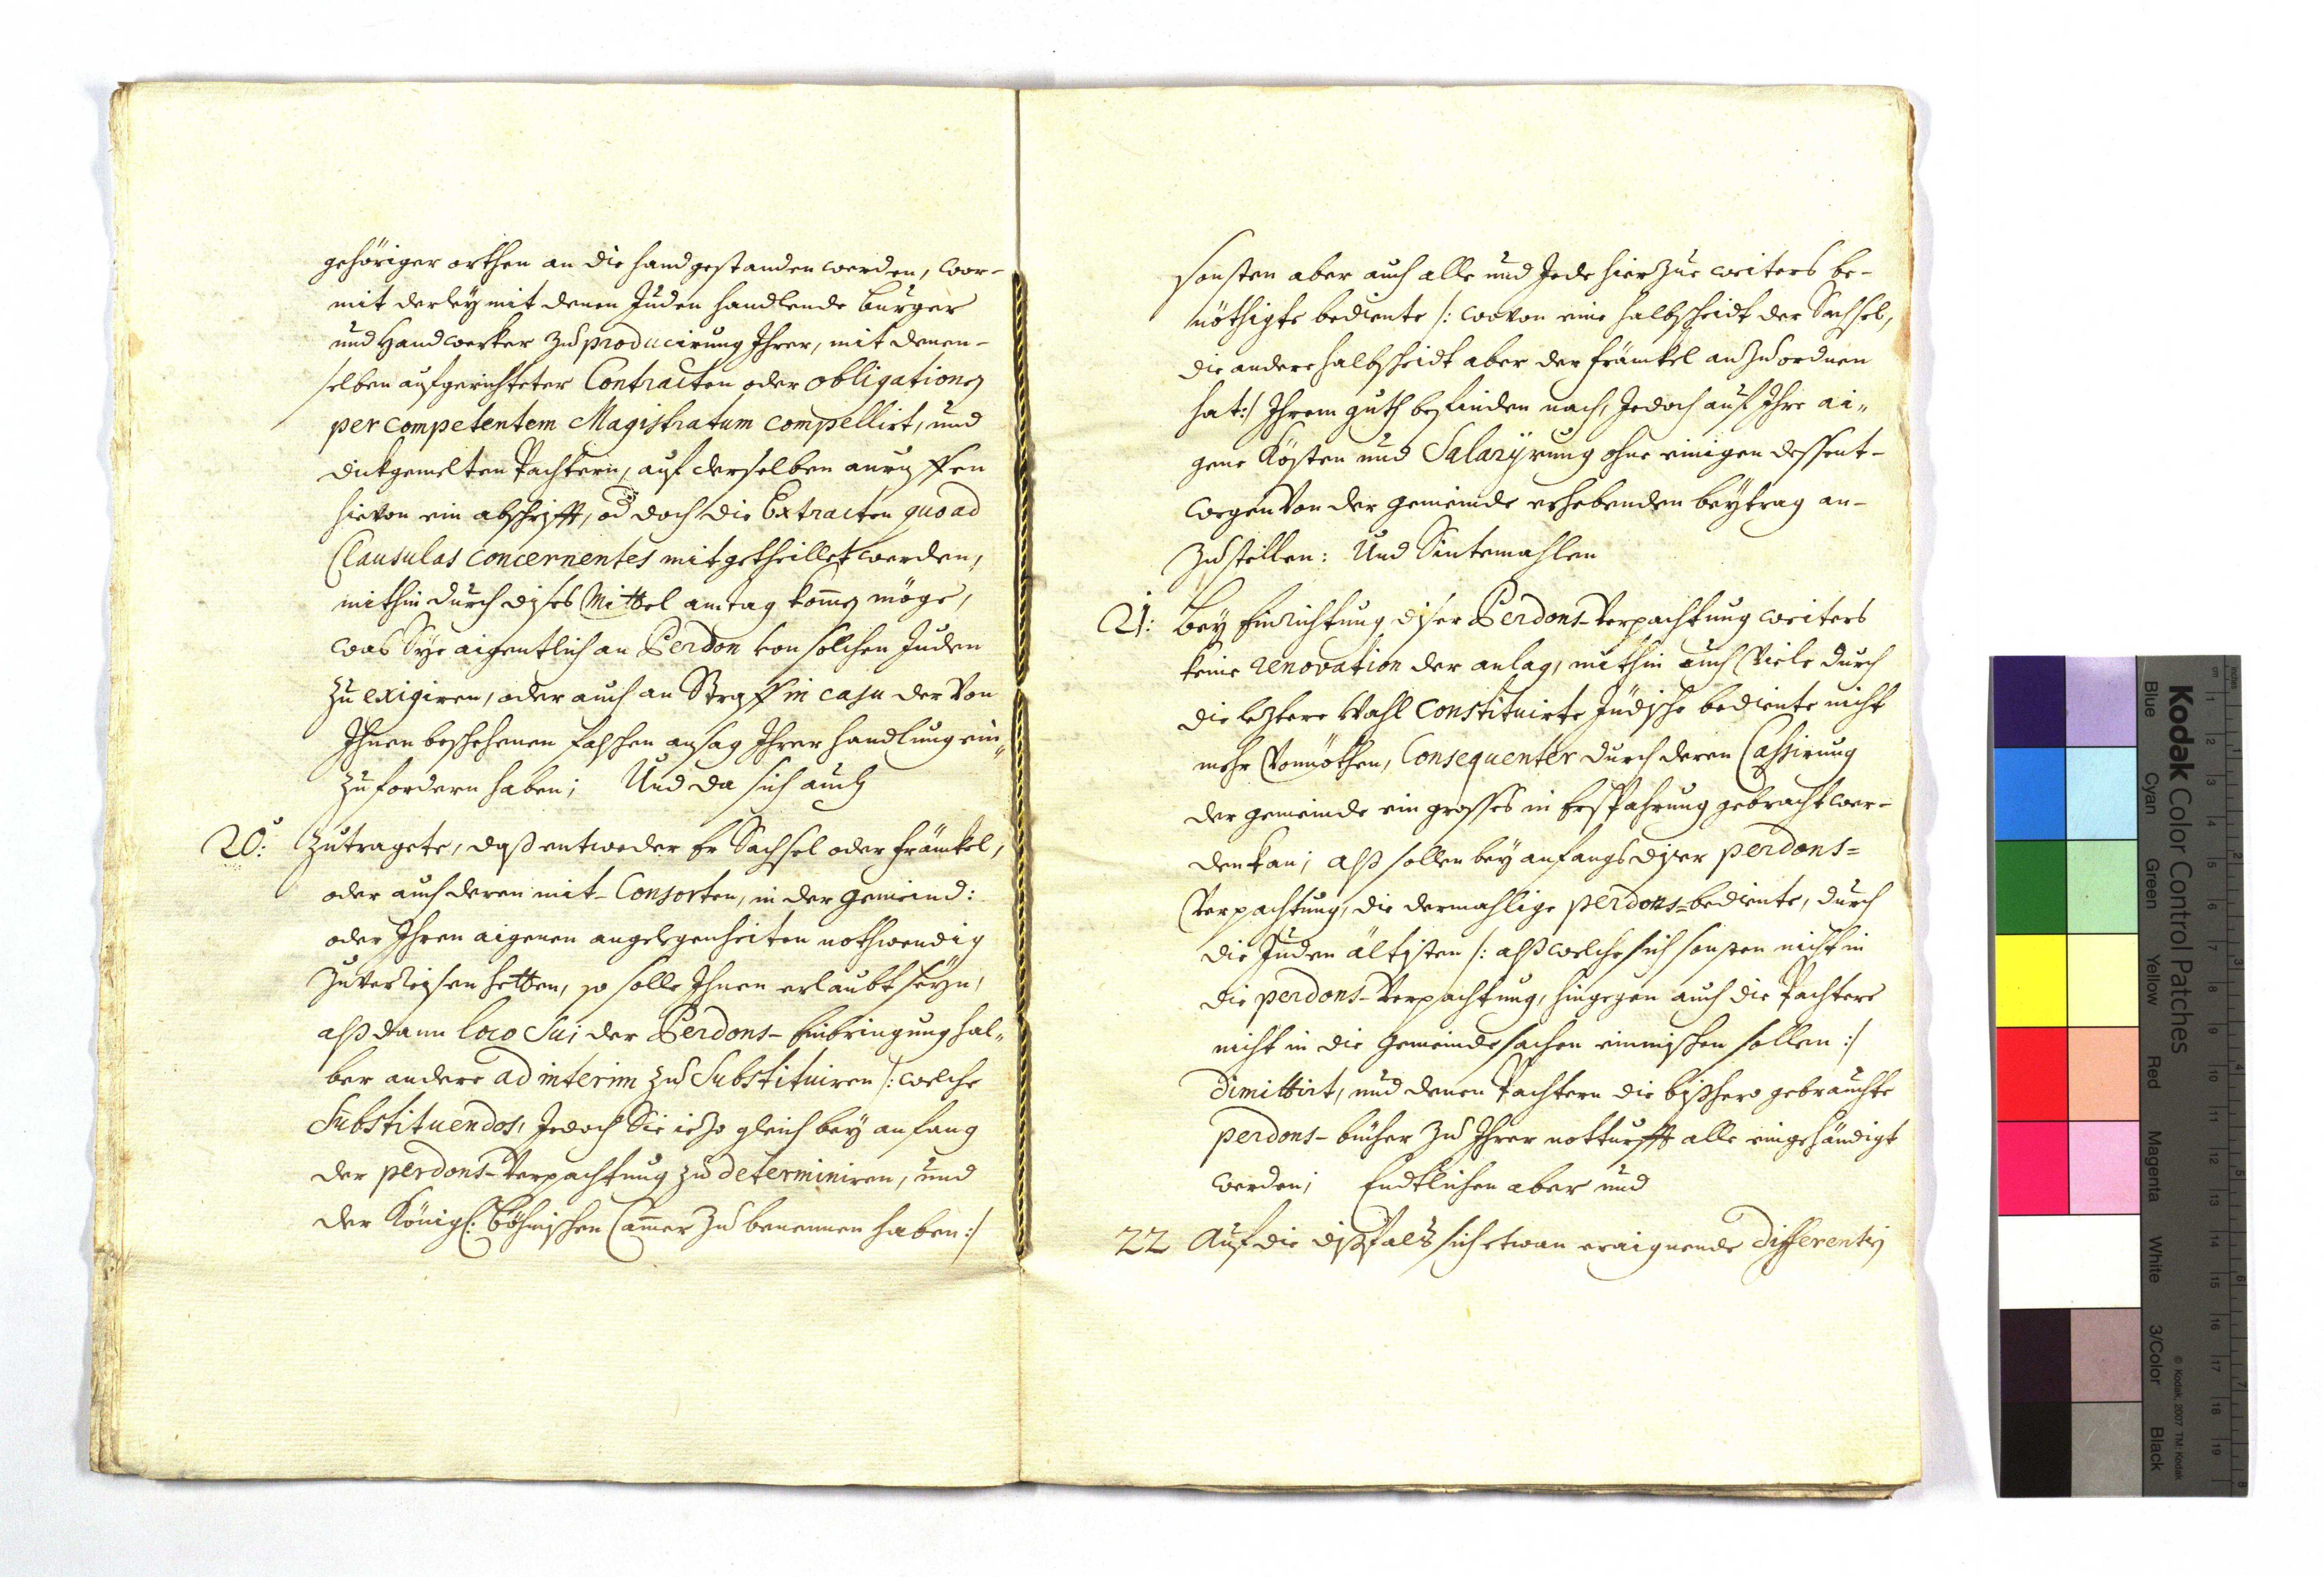 gehöriger orthen an die hand gestanden werden, wor-
mit derley mit denen Juden handlende burger
und Handwerker zu producirung Ihrer, mit denen-
selben aufgerichteter Contracten oder obligationen
per competentem Magistratum compellirt, und
dickgemelten Pachtern, auf derselben anruffen
hievon ein abschrifft, od doch die Extracten quoad
Clausulas concernentes mitgetheillet werden,
mithin durch dises Mittel am tag komen möge,
was Sye aigentlich an Perdon von solchen Juden
zu exigiren, oder auch an Straff in casu der von
Ihnen beschehenen falschen ansag Ihrer handlung ein„
zufordern haben; Und da sich auch
20: Zutragete, daß entweder Er Sachsel oder Fränkel,
oder auch deren mit-Consorten, in der Gemeind:
oder Ihren aigenen angelegenheiten nothwendig
zu verreisen hetten, so solle Ihnen erlaubt seyn,
alß dann loco sui der Perdons-Einbringung hal„
ber andere ad interim zu substituiren /: welche
Substituendos, Jedoch Sie iezo gleich bey anfang
der perdons-Verpachtung zu determiniren, und
der Königl: Böhmischen Camer zu benennen haben :/
sonsten aber auch alle und Jede hierzue weiters be-
nöthigte bediente /: wovon eine halbscheidt der Sachsel,
die andere halbscheidt aber der Fränkel anzuordnen
hat :/ Ihrem guth befinden nach, Jedoch auf Ihre ai„
gene Kösten und Salarÿrung ohne einigen dessent-
wegen von der Gemeinde erhebenden beytrag an-
zustellen: Und Sintemahlen
21: Bey Einrichtung diser Perdons-Verpachtung weiters
keine renovation der anlag, mithin auch Viele durch
die leztere Wahl constituirte Jüdische bediente nicht
mehr vonnöthen, Consequenter durch deren Cassirung
der Gemeinde ein grosses in ersparung gebracht wer-
den kan; alß sollen bey anfangs diser perdons=
Verpachtung, die dermahlige perdons=bediente, durch
die Juden ältisten /: alß welche sich sonsten nicht in
die perdons-Verpachtung, hingegen auch die Pachtere
nicht in die Gemeinde sachen einmischen sollen :/
dimittirt, und denen Pachtern die bißhero gebrauchte
perdons-bücher zu Ihrer notturfft alle eingehändigt
werden; Endtlichen aber und
22 Auf die dißfals sich etwan eraignende differentien
Kodak Color Control Patches
Blue Cyan Green Yellow Red Magenta White 3/Color Black
© Kodak, 2007 TM: Kodak